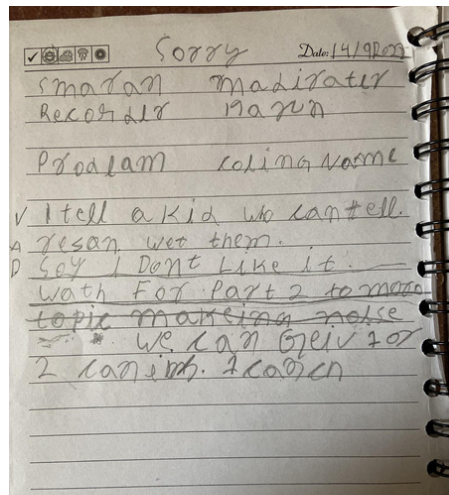 Sorry Date: 14/9/2022
Smaran Madirater
Recorder Narun
Prodlam coling Name
V I tell a kid wo can tell.
A resan wet them.
D Soy I Dont Like it.
wath For Part 2 tomoro
topic makeing noise
we can Geiv 1 or
2